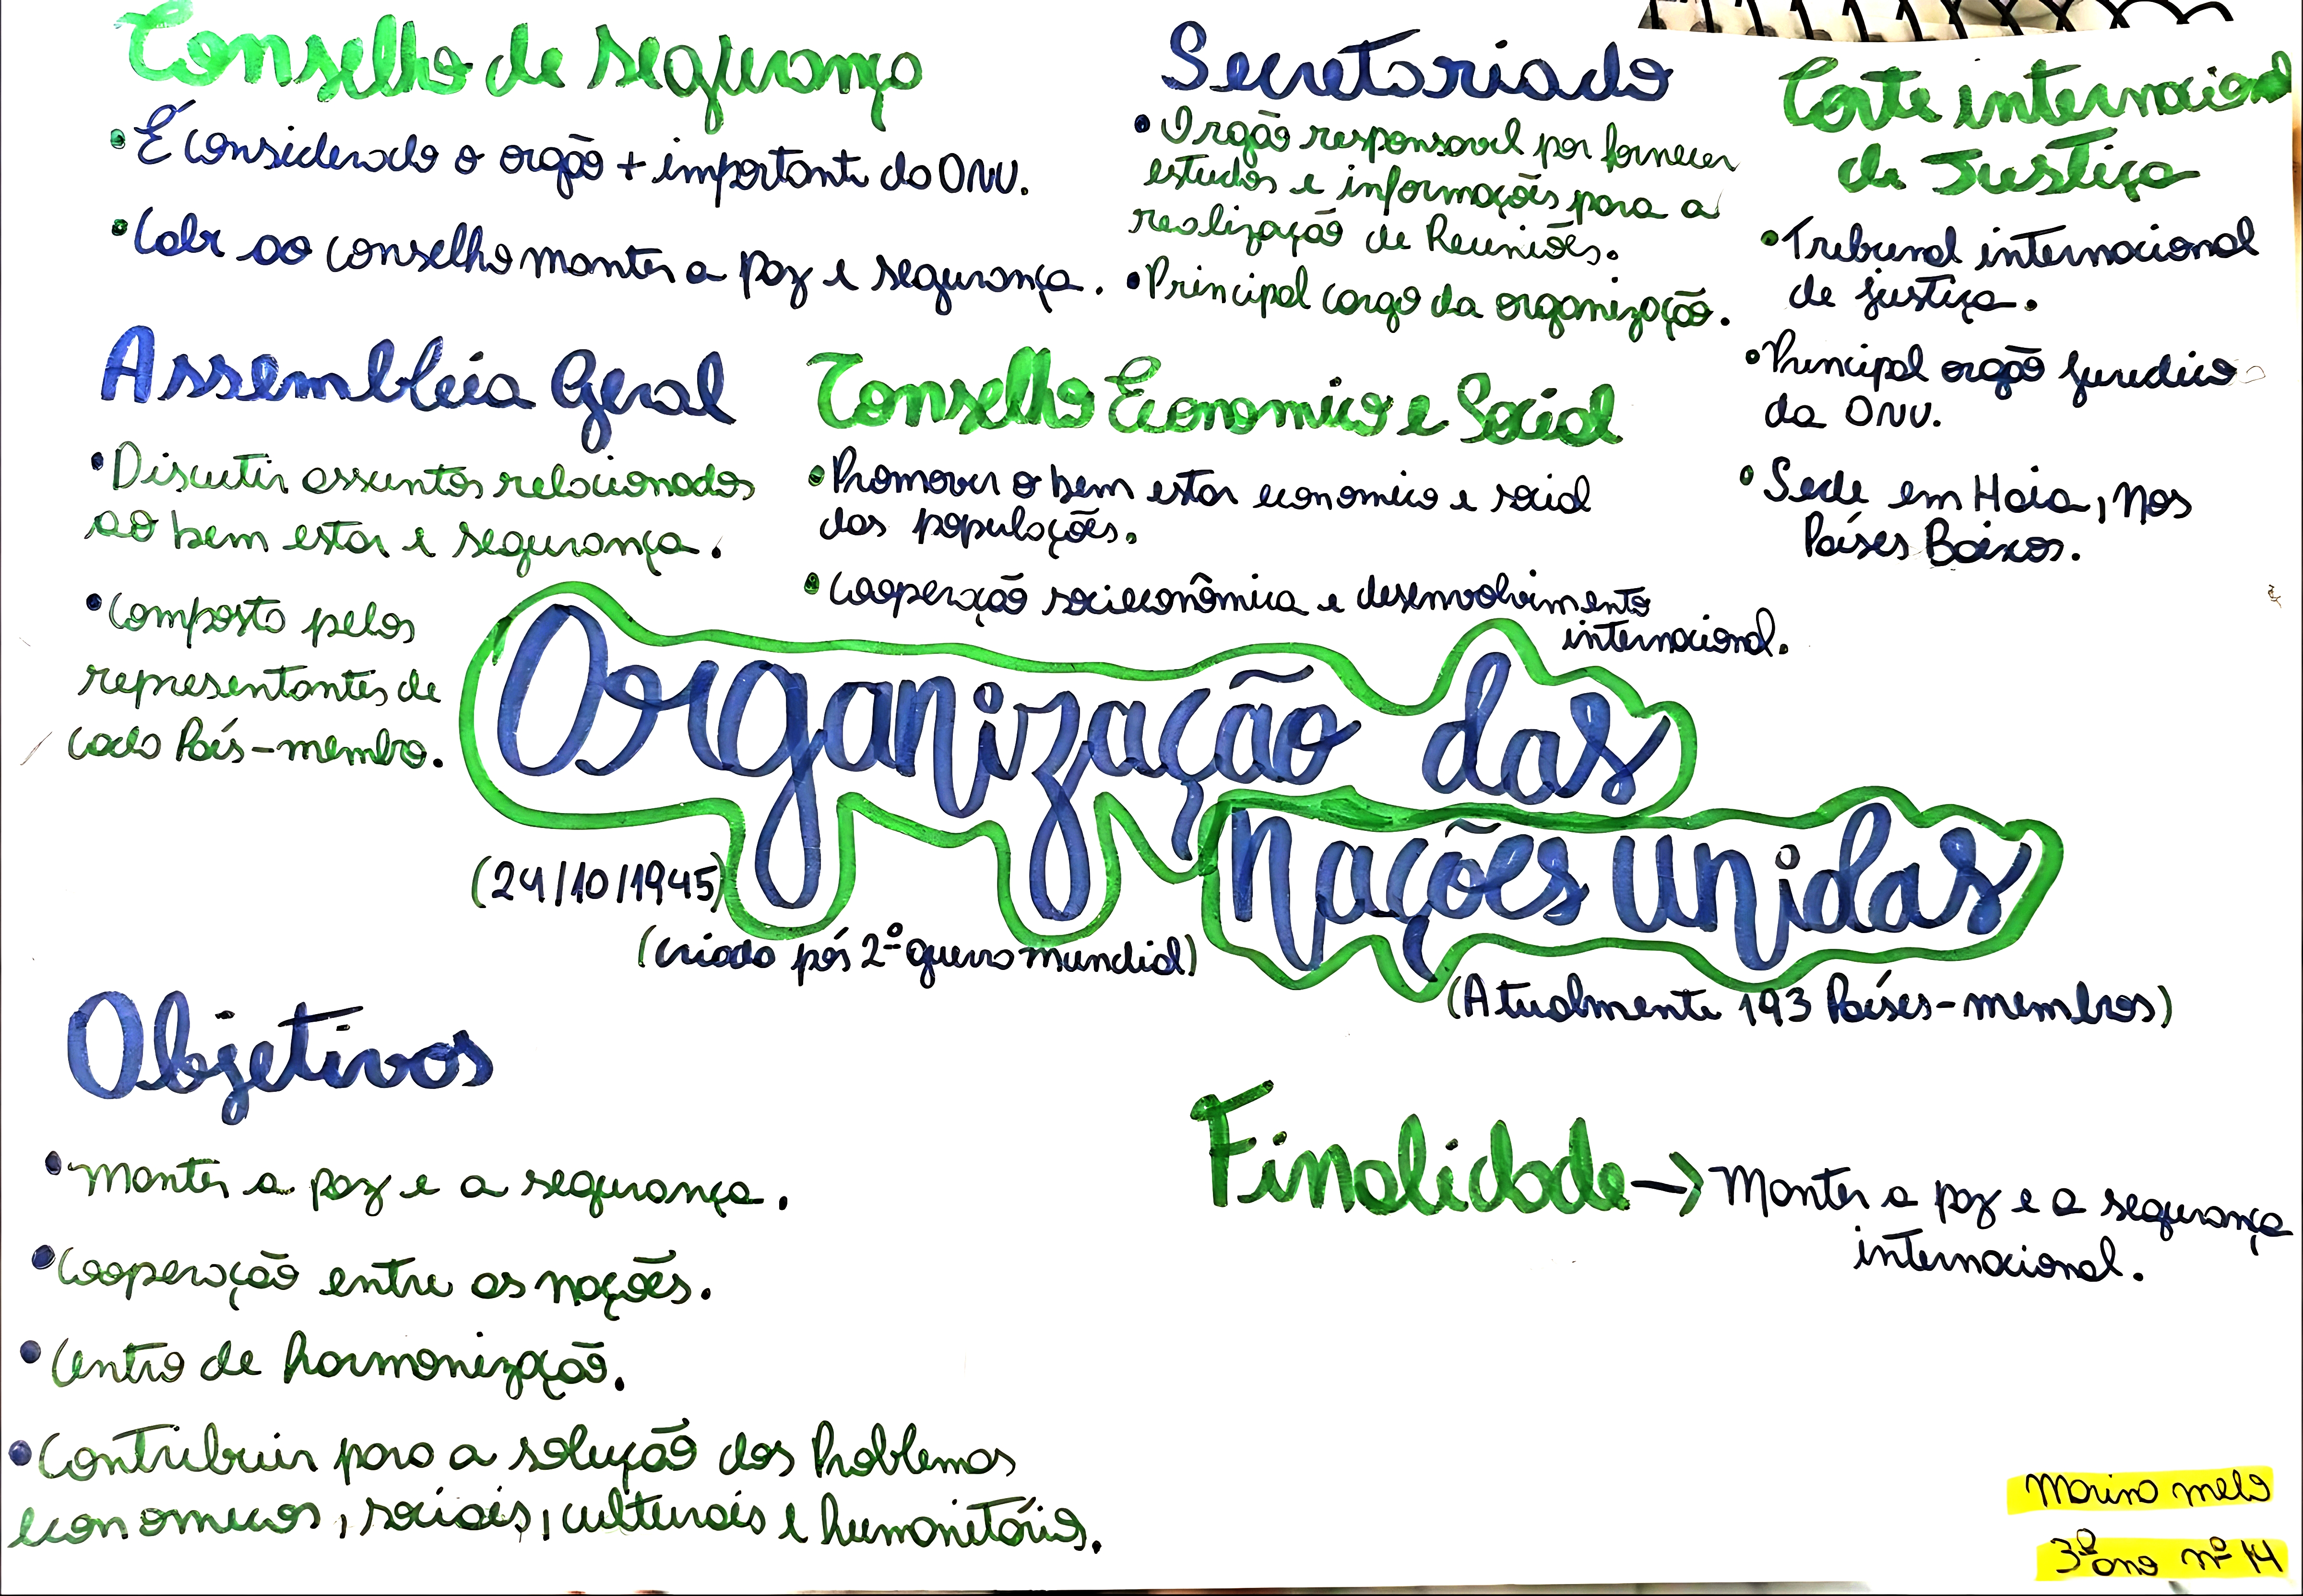 Conselho de segurança
• É considerado o orgão + importante da ONU.
• Cabe ao conselho manter a paz e segurança.
Secretariado
• Orgão responsavel por fornecer
estudos e informações para a
realização de Reuniões.
• Principal cargo da organização.
Corte internacional
de Justiça
• Tribunal internacional
de justiça.
• Principal orgão juridico
da ONU.
• Sede em Haia, nos
Países Baixos.
Assembleia Geral
• Discutir assuntos relacionados
ao bem estar e segurança.
• Composto pelos
representantes de
cada País-membro.
Conselho Economico e Social
• Promover o bem estar economico e social
das populações.
• Cooperação socieconômica e desenvolvimento
internacional.
Organização das
Nações Unidas
(24/10/1945)
(criada pós 2ª guerra mundial)
(Atualmente 193 Países-membros)
Objetivos
• Manter a paz e a segurança.
• Cooperação entre as nações.
• Centro de harmonização.
• Contribuir para a solução dos Problemas
economicos, sociais, culturais e humanitários.
Finalidade → Manter a paz e a segurança
internacional.
Marina melo
3º ano nº 14